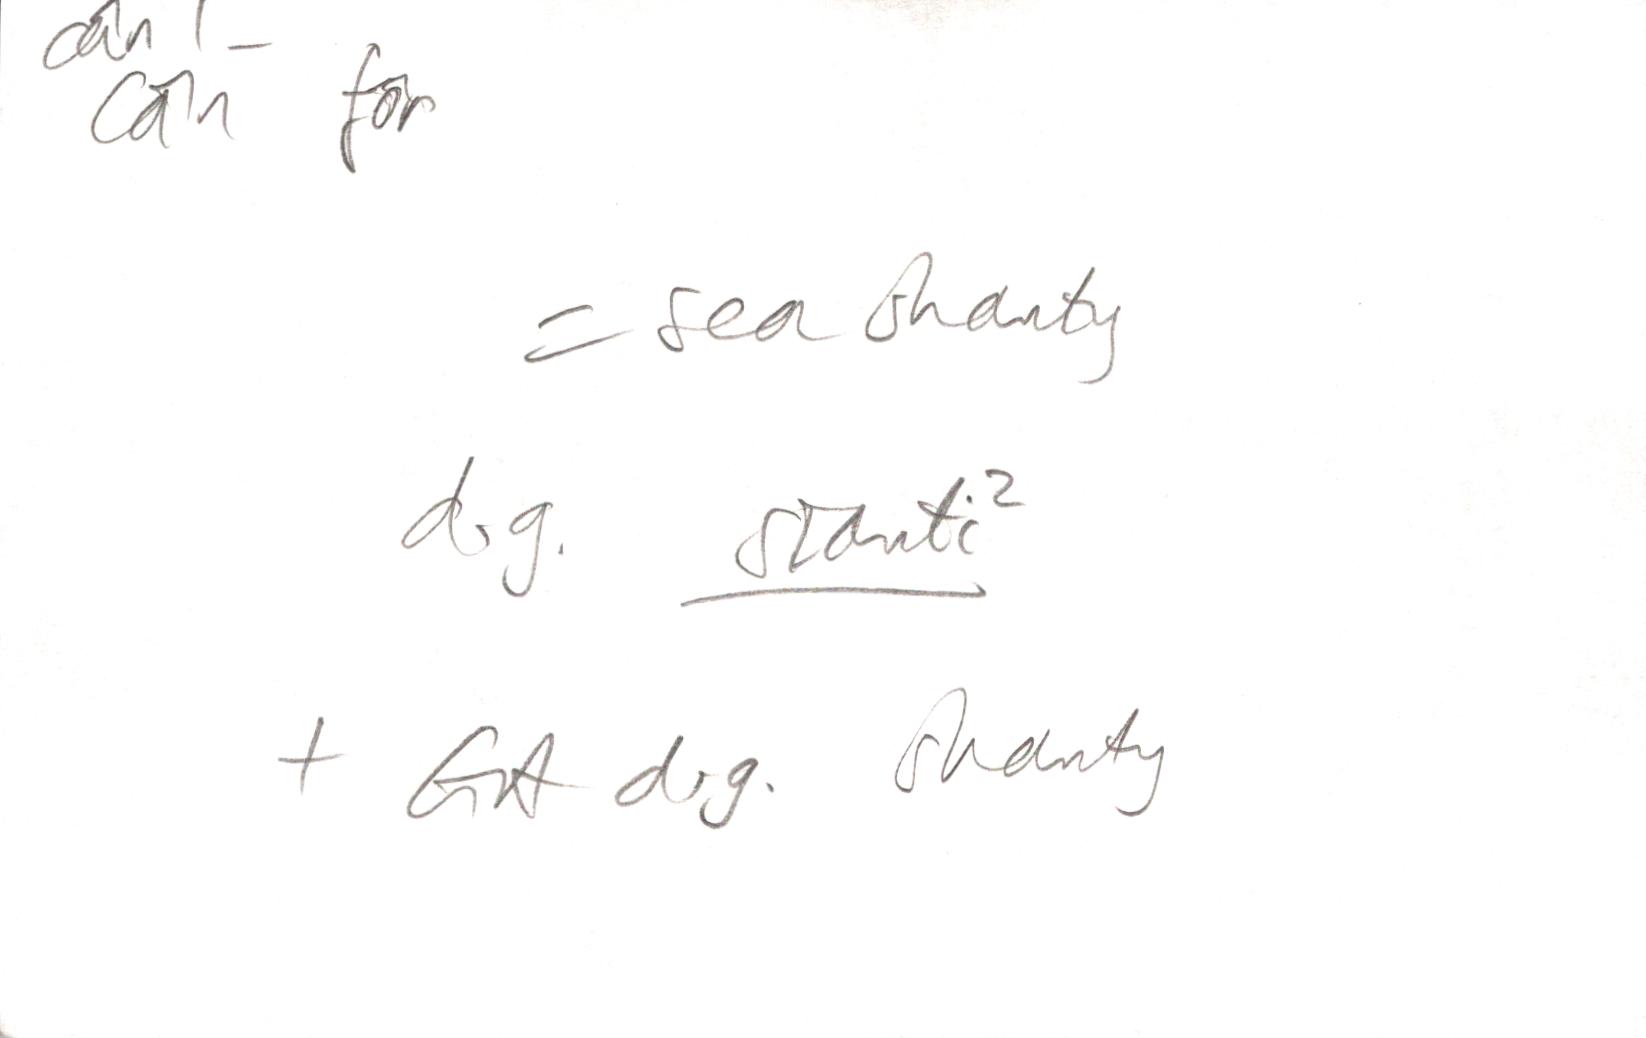 cân
Cân fôr
= sea shanty
d.g. sianti²
+ GA d.g. shanty